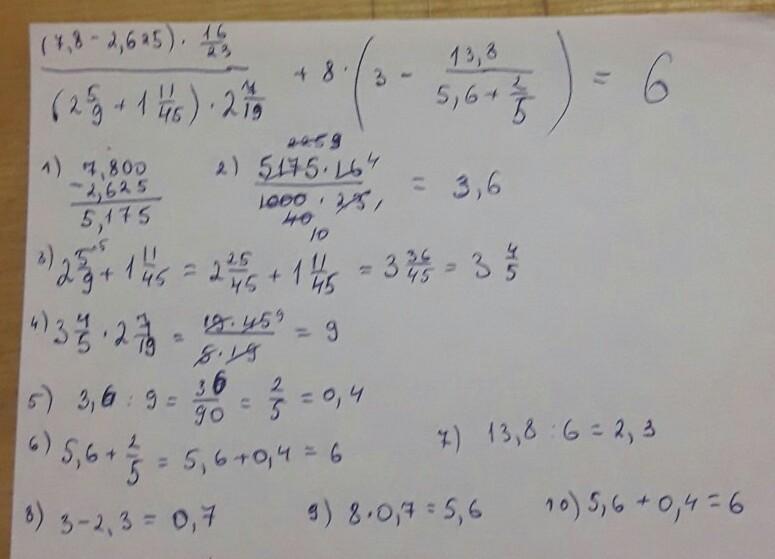 (7,8 - 2,625) · 16/23
(2 5/9 + 1 11/45) · 2 7/19 + 8 · (3 - 13,8 / (5,6 + 2/5)) = 6
1) 7,800
- 2,625
5,175
2) 5175 · 16 4 / 1000 · 23 = 3,6
40
10
3) 2 5/9 + 1 11/45 = 2 25/45 + 1 11/45 = 3 36/45 = 3 4/5
4) 3 4/5 · 2 7/19 = 19 · 45 9 / 5 · 19 = 9
5) 3,6 : 9 = 36/90 = 2/5 = 0,4
6) 5,6 + 2/5 = 5,6 + 0,4 = 6
7) 13,8 : 6 = 2,3
8) 3 - 2,3 = 0,7
9) 8 · 0,7 = 5,6
10) 5,6 + 0,4 = 6